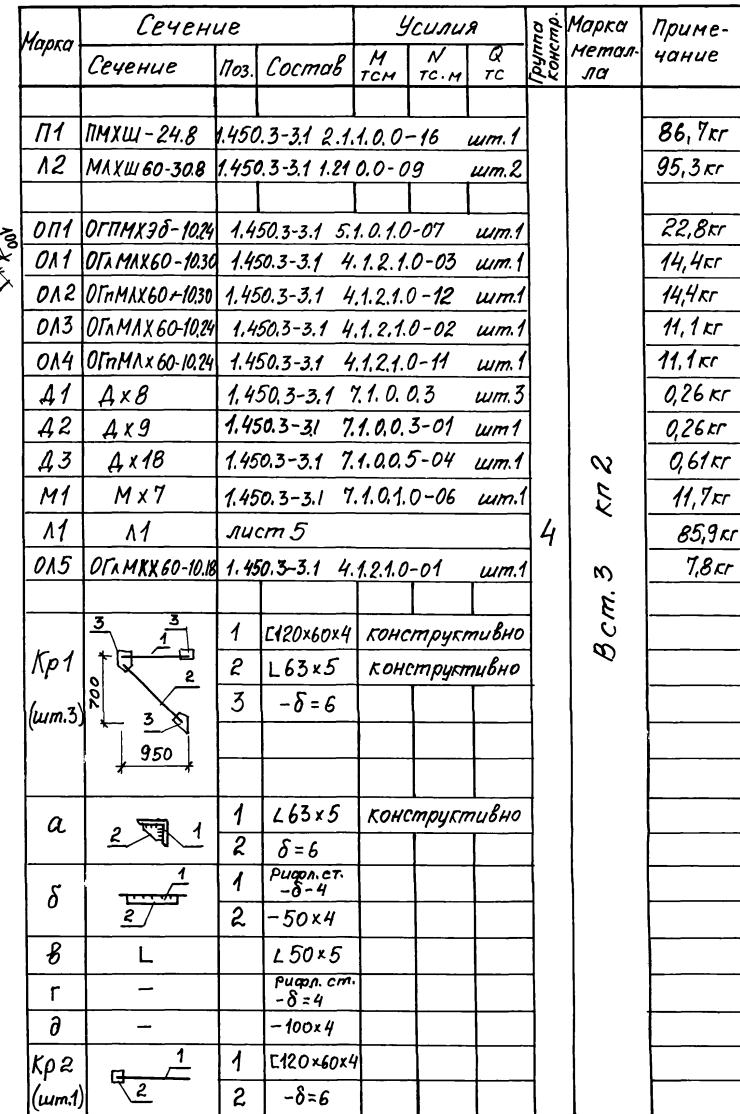 Марка Сечение Усилия Группа констр. Марка метал-ла Приме-чание
Сечение Поз. Состав М тсм N тс.м Q тс
П1 ПМХШ-24.8 1.450.3-3.1 2.1.1.0.0-16 шт.1 86,7кг
Л2 МЛХШ60-30.8 1.450.3-3.1 1.21 0.0-09 шт.2 95,3кг
ОП1 ОГПМХЭб-10.24 1.450.3-3.1 5.1.0.1.0-07 шт.1 22,8кг
100
ОЛ1 ОГлМЛХ60-10.30 1.450.3-3.1 4.1.2.1.0-03 шт.1 14,4кг
ОЛ2 ОГпМЛХ60-10.30 1.450.3-3.1 4.1.2.1.0-12 шт.1 14,4кг
ОЛ3 ОГлМЛХ60-10.24 1.450.3-3.1 4.1.2.1.0-02 шт.1 11,1кг
ОЛ4 ОГпМЛх60-10.24 1.450.3-3.1 4.1.2.1.0-11 шт.1 11,1кг
Д1 Дх8 1.450.3-3.1 7.1.0.0.3 шт.3 0,26кг
Д2 Дх9 1.450.3-3.1 7.1.0.0.3-01 шт1 0,26кг
Д3 Дх18 1.450.3-3.1 7.1.0.0.5-04 шт.1 0,61кг
М1 Мх7 1.450.3-3.1 7.1.0.1.0-06 шт.1 11,7кг
Л1 Л1 лист 5 4 85,9кг
ОЛ5 ОГлМКХ60-10.18 1.450.3-3.1 4.1.2.1.0-01 шт.1 7,8кг
В ст. 3 кп 2
Кр1 3 1 3 1 [120х60х4 конструктивно
2 2 L63х5 конструктивно
(шт.3) 700 3 3 -δ=6
950
а 2 1 1 L63х5 конструктивно
2 δ=6
б 1 1 Рифл.ст. -δ-4
2 2 -50х4
в L L50х5
г – Рифл. ст. -δ=4
д – -100х4
Кр2 1 1 [120х60х4
(шт.1) 2 2 -δ=6